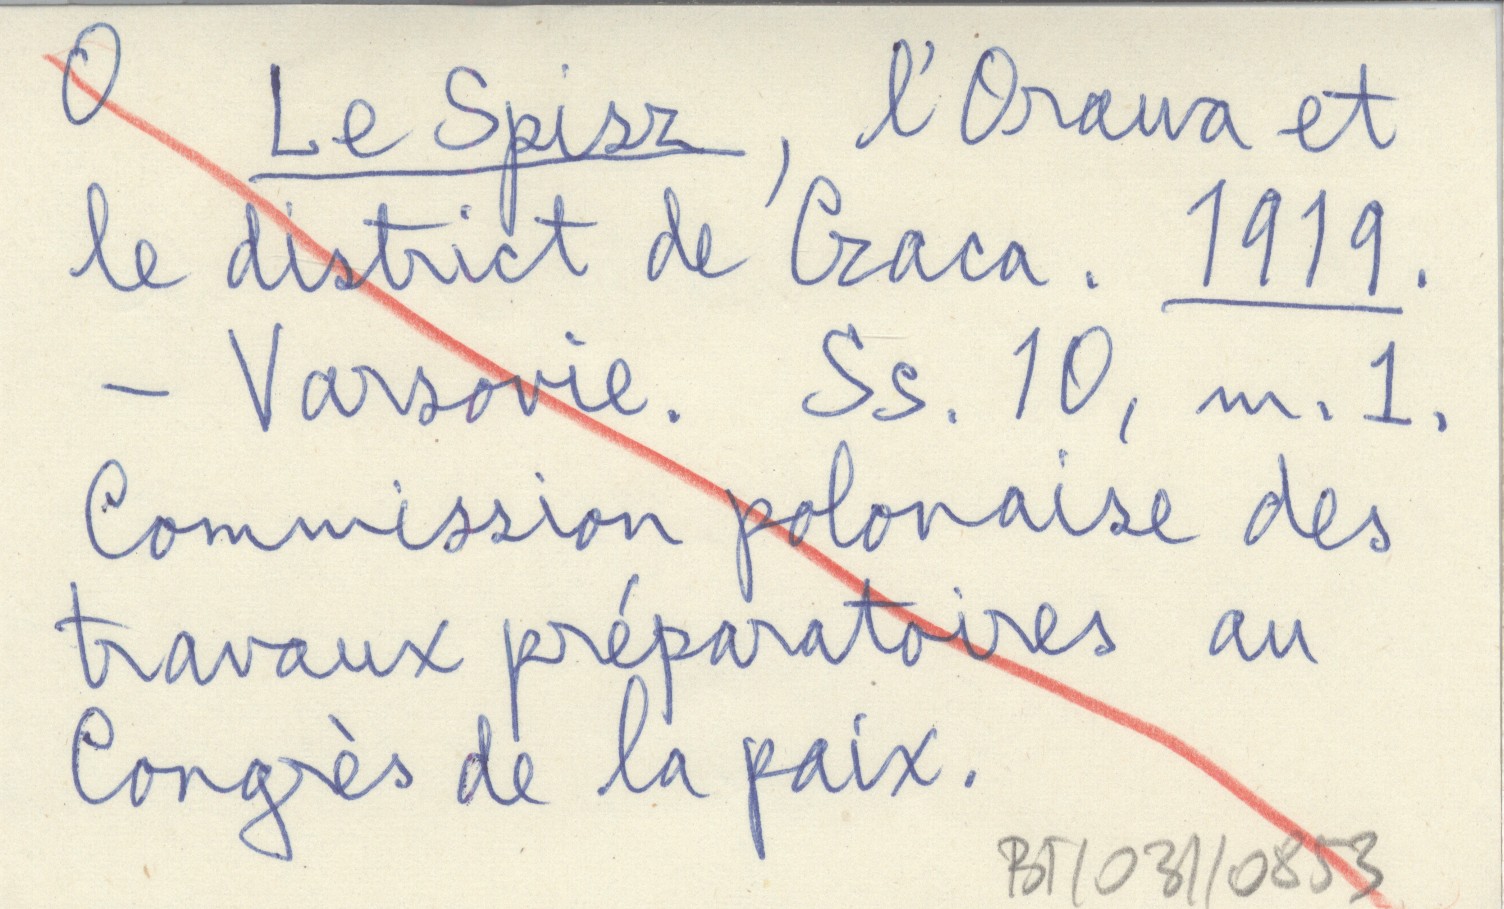 O Le Spisz, l'Orawa et
le district de Czaca. 1919.
– Varsovie. Ss. 10, m. 1.
Commission polonaise des
travaux préparatoires au
Congrès de la paix.
BT/031/0853